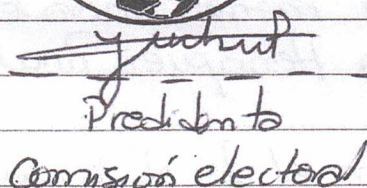 Predidente
Comisión electoral